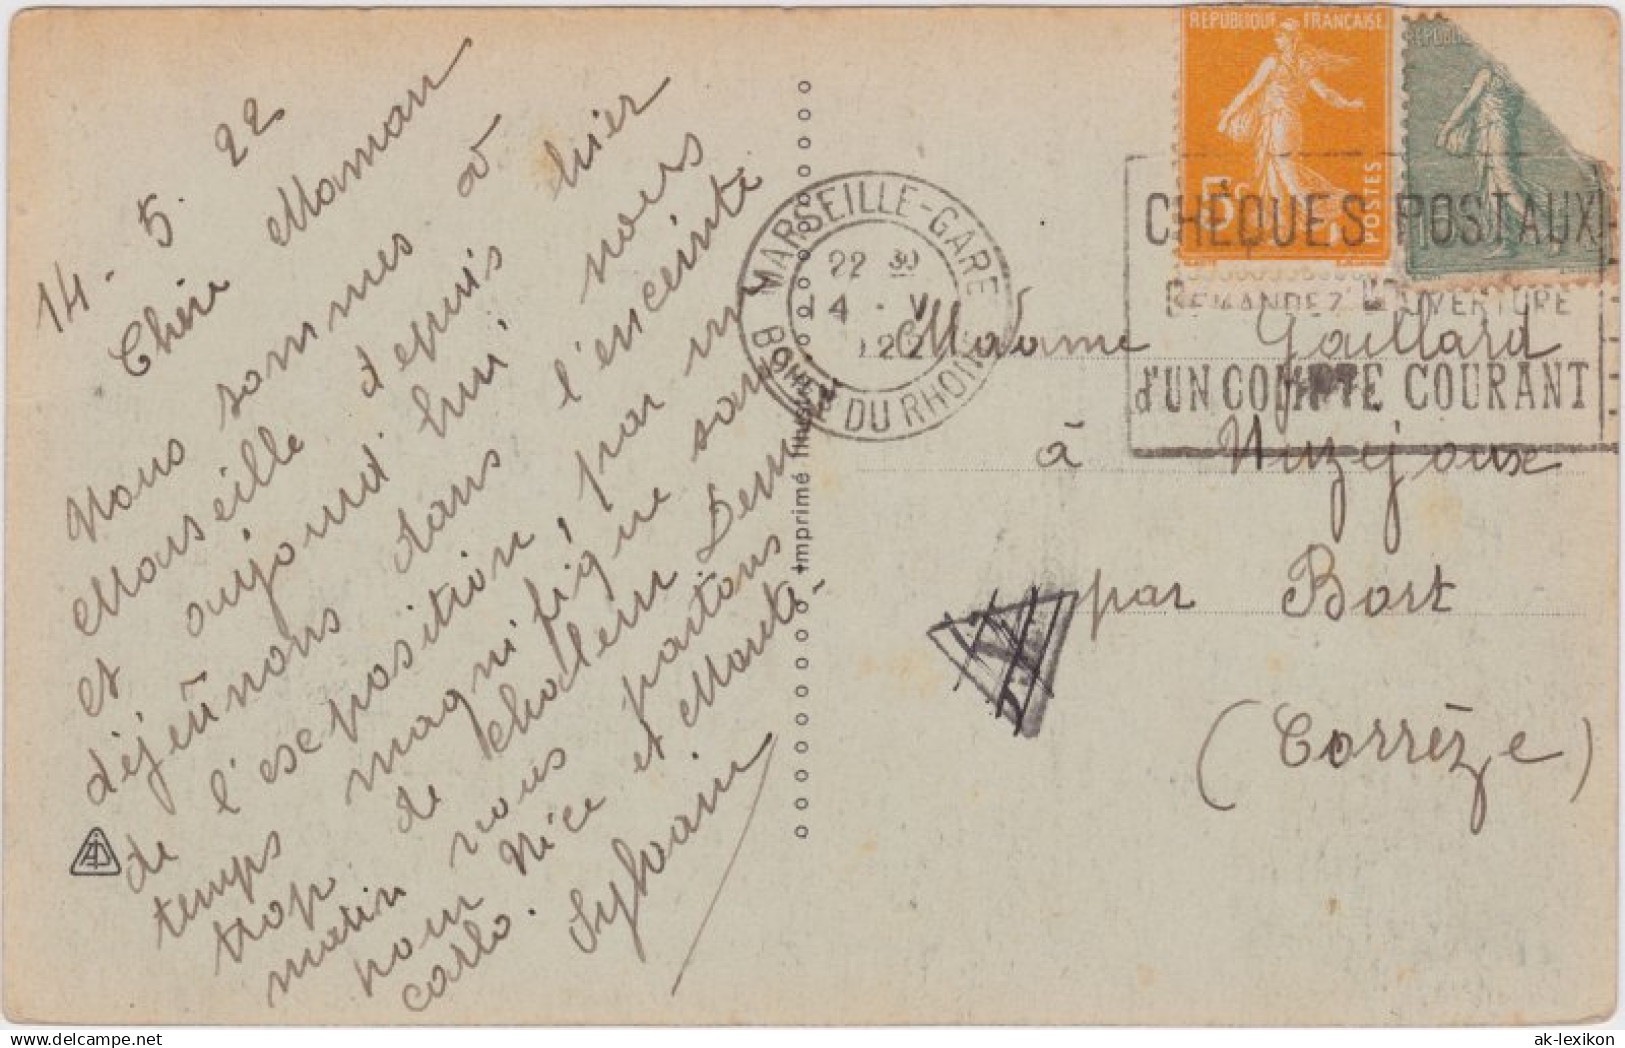 14. 5. 22
Chère Maman
Nous sommes à
Marseille depuis hier
et aujourd'hui nous
déjeûnons dans l'enceinte
de l'exposition, par un
temps magnifique sans
trop de chaleur. Demain
matin nous partons
pour Nice et Monte-
Carlo.
Sylvain
Imprimé
REPUBLIQUE FRANÇAISE
5c
POSTES
MARSEILLE-GARE
22 30
14 - V
22
BCHES DU RHONE
CHÈQUES POSTAUX
DEMANDEZ L'OUVERTURE
d'UN COMPTE COURANT
Madame Gaillard
à Nuzéjoux
par Bort
(Corrèze)
T
delcampe.net
ak-lexikon